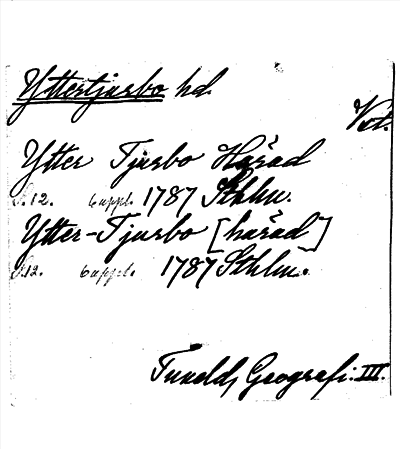 Yttertjurbo hd.
Vstm.
Ytter Tjurbo Härad
S.12. 6 uppl. 1787 Sthlm.
Ytter-Tjurbo [härad]
S.12. 6 uppl. 1787 Sthlm.
Tuneld, Geografi. III.